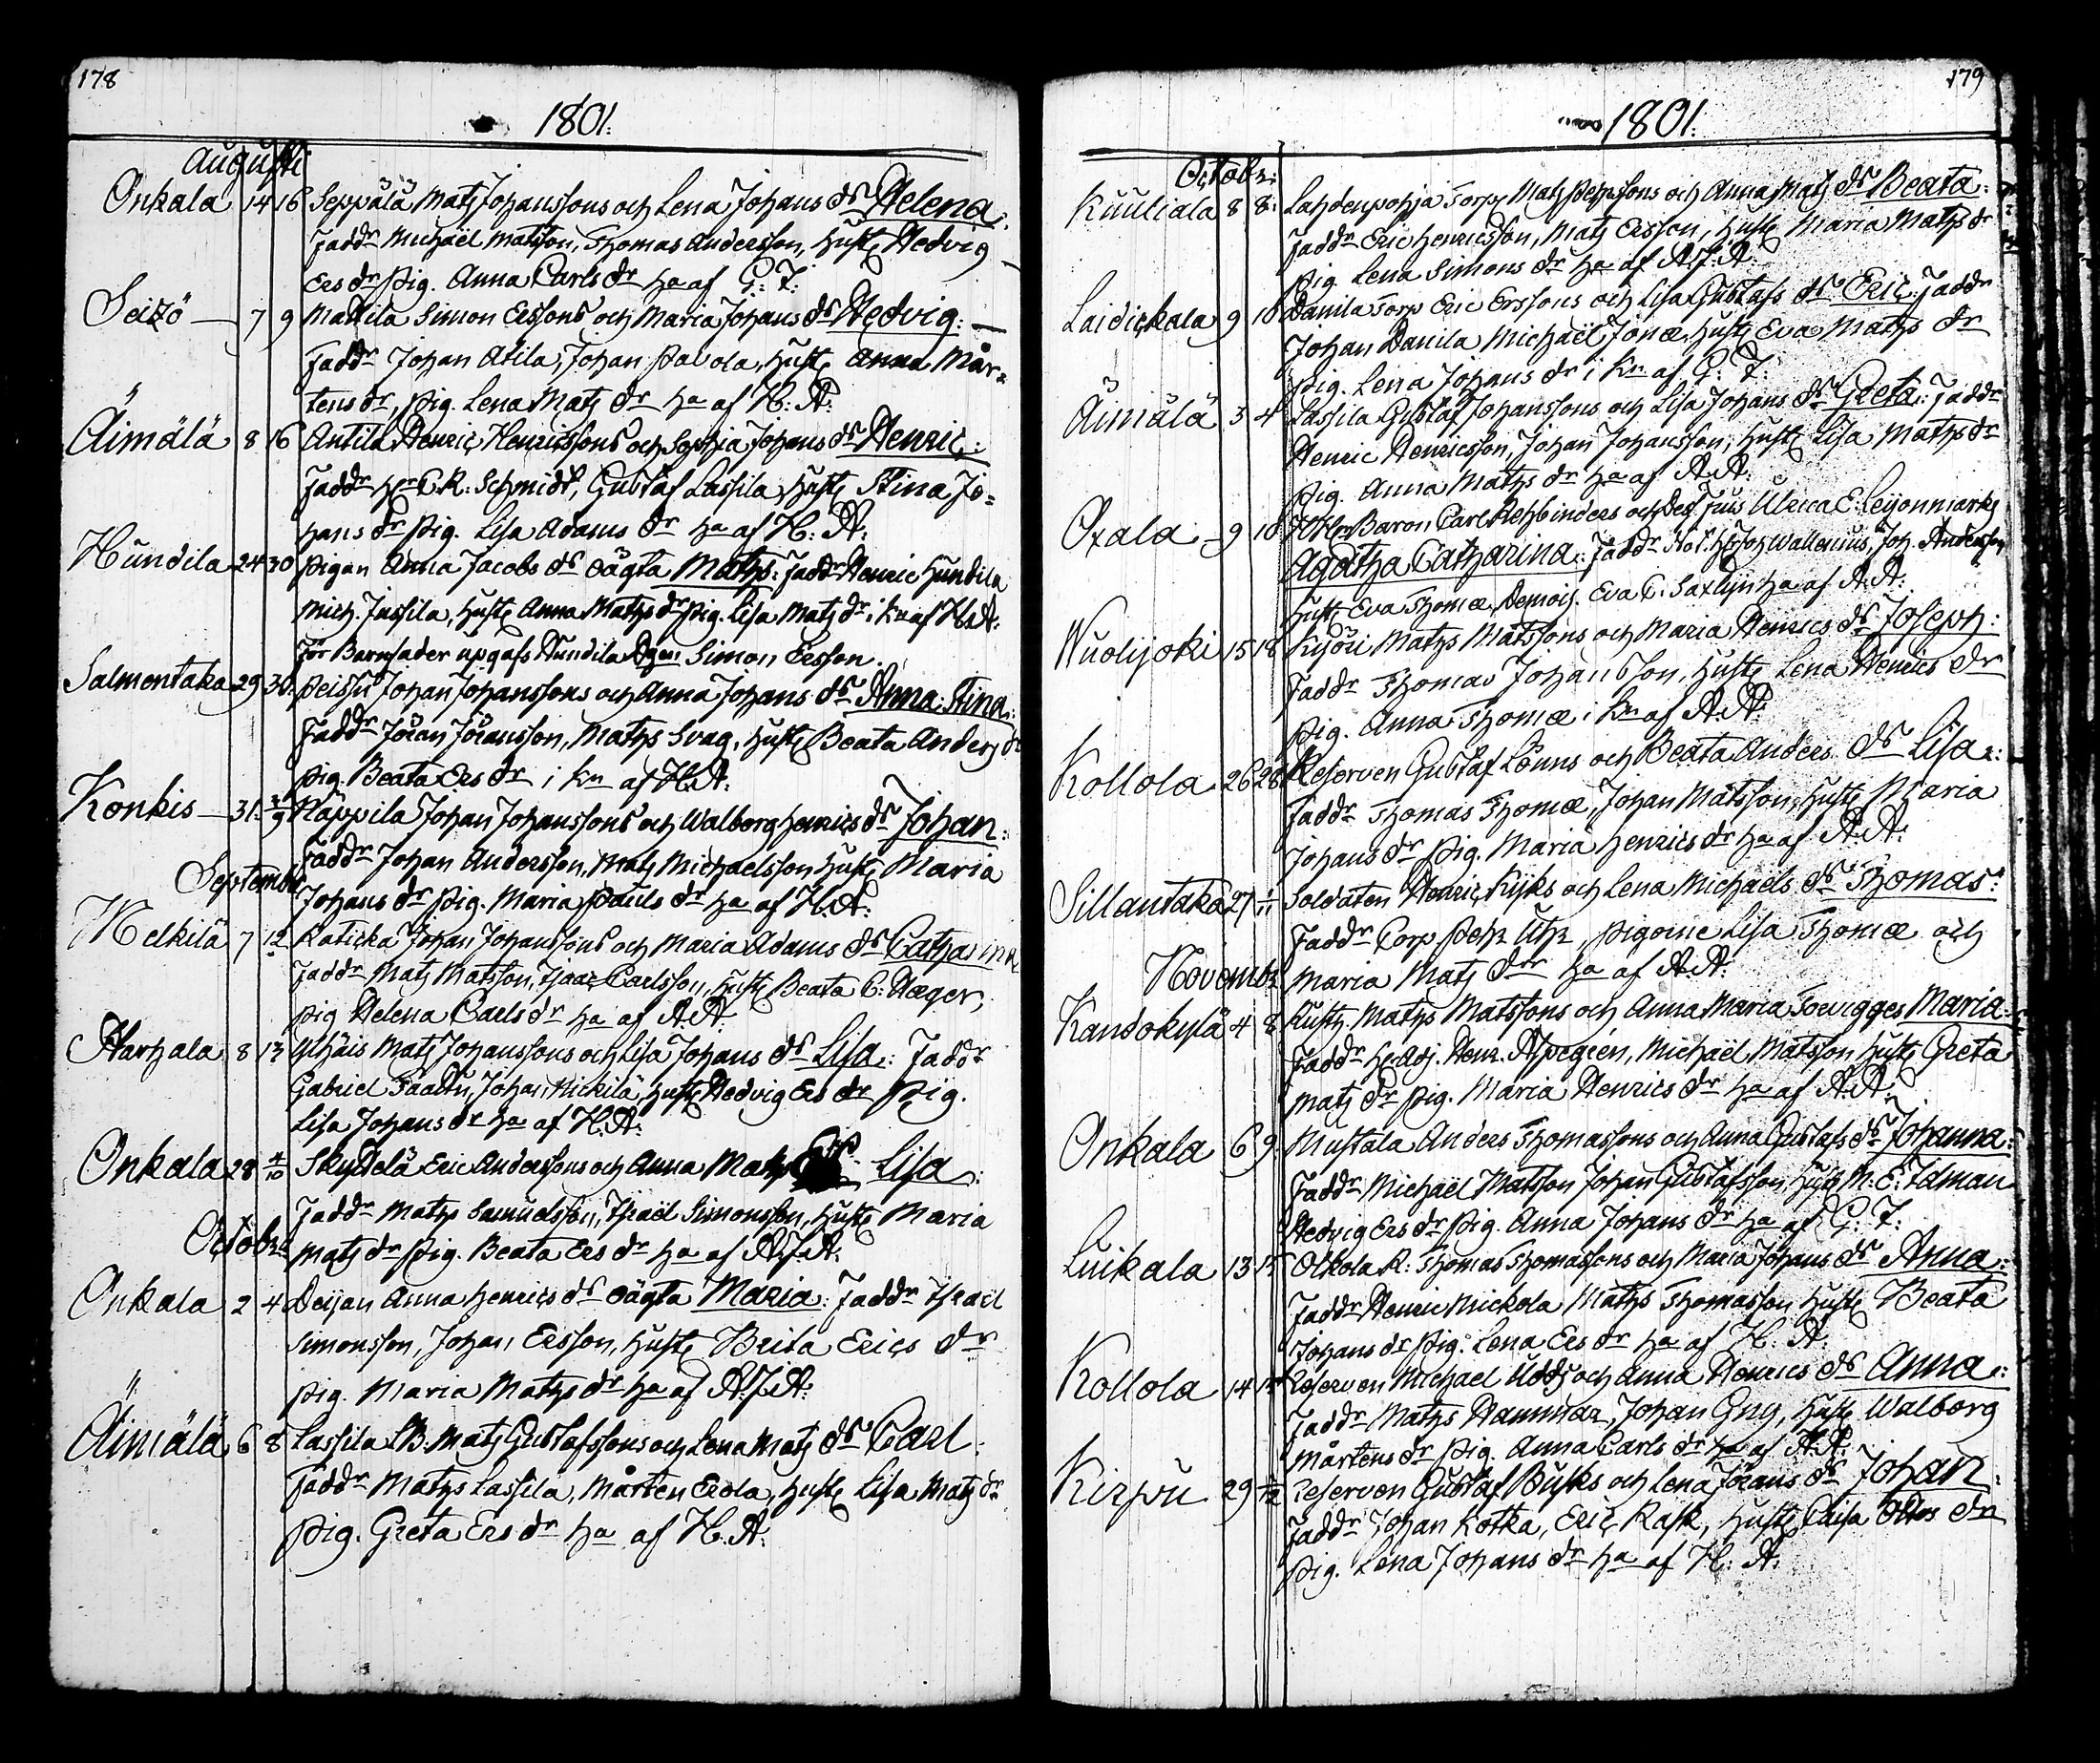 178
1801:
Augusti
Onkala 14 16 Seppälä Matz Johanssons och Lena Johans dr Helena:
Faddr Michaël Matsson, Thomas Andersson, Hustr Hedvig
Ers dr pig. Anna Carls dr ha af G: F:
7 9 Mattila Simon Erssons och Maria Johans dr Hedvig:
Faddr Johan Atila, Johan Pavola, Hustr Anna Mår=
tens dr, pig. Lena Matz dr ha af H: A:
Äimälä 8 16 Antila Henric Henricssons och Sophia Johans dr Henric:
Faddr Hr C. R: Schmidt, Gustaf Lassila, Hustr Stina Jo=
hans dr pig. Lisa Adams dr ha af H: A:
Hundila 24 30 Pigan Anna Jacobs dr oägta Maths: Faddr Henric Hundila
Mich. Jussila, Hustr Anna Maths dr pig. Lisa Matz dr i kn af H: A:
För Barnfader upgafs Hundila Simon Ersson.
Salmentaka 29 30 Peissu Johan Johanssons och Anna Johans dr Anna Stina:
Faddr Jöran Jöransson, Maths Svag, Hustr Beata Anders dr
pig. Beata Ers dr i kn af H: A:
Konkis 31. Näppila Johan Johanssons och Walborg Henrics dr Johan:
Faddr Johan Andersson, Matz Michaelsson Hustr Maria
September
Johans dr pig. Maria Pauls dr ha af H: A:
Melkilä 7 12 Katicka Johan Johanssons och Maria Adams dr Catharina
Faddr Matz Matsson, Isaac Carlsson, Hustr Beata C: Hæger,
pig Helena Carls dr ha af A: A:
Harhala 8 13 Matz Johanssons och Lisa Johans dr Lisa: Faddr
Gabriel Johan Mickilä, Hustr Hedvig Ers dr pig.
Lisa Johans dr ha af H: A:
Onkala 28 4/10 Skyttelä Eric Anderssons och Anna Maths Lisa:
Faddr Maths Samuelsson, Israël Simonsson, Hustr Maria
October
Matz dr pig. Beata Ers dr ha af A: J: A:
Onkala 2 4 Deijan Anna Henrics dr oägta Maria: Faddr Israël
Simonsson, Johan Ersson, Hustr Brita Erics dr
pig. Maria Maths dr ha af A: J: A:
Äimälä 6 8 Lassila LB. Matz Gustafssons och Lena Matz dr Carl:
Faddr Maths Lassila, Mårten Erola, Hustr Lisa Matz dr
pig. Greta Ers dr ha af H: A:
179
1801:
October
Kuuliala 8 8: Lahdenpohja Torp Matz och Anna Matz dr Beata:
Faddr Eric Henricsson, Matz Ersson, Hustr Maria Maths dr
pig. Lena Simons dr ha af A: J: A:
Laidickala 9 10 Danila Torp Eric Erssons och Lisa Gustafs dr Eric: Faddr
Johan Danila Michaël Jonæ, Hustr Eva Maths dr
pig. Lena Johans dr i kn af G: F:
Äimälä 3 4 Lassila Gustaf Johanssons och Lisa Johans dr Greta: Faddr
Henric Henricsson, Johan Johansson, Hustr Lisa Maths dr
pig. Anna Maths dr ha af A: A:
Oxala 9 10 Baron Carl Rehbinders och Dess Frus Ulrica E: Leijonmarks
Agatha Catharina: Faddr Joh Wallenius, Joh. Andersson
Hustr Eva Thomæ, Demois. Eva C: Saxlyn ha af A: A:
Wuolijoki 15 18 Maths Matssons och Maria Henrics dr Joseph:
Faddr Thomas Johansson, Hustr Lena Henrics dr
pig. Anna Thomæ i kn af A: A:
Kollola 26 28 Reserven Gustaf Lönns och Beata Anders dr Lisa:
Faddr Thomas Thomæ, Johan Matsson, Hustr Maria
Johans dr pig. Maria Henrics dr ha af A: A:
Sillantaka 27 1/11 Soldaten Henric Kijks och Lena Michaels dr Thomas:
Faddr Corp Pehr Uhr, pigorne Lisa Thomæ och
November
Maria Matz drr ha af A: A:
Kandokylä 4 8 Rusth. Maths Matssons och Anna Maria Maria:
Faddr Hr Adj. Henr. Alpegren, Michaël Matsson Hustr Greta
Matz dr pig. Maria Henrics dr ha af A: A:
Onkala 6 9 Mustala Anders Thomassons och Anna Gustafs dr Johanna:
Faddr Michaël Matsson Johan Gustafsson Hustr M: E: Idman
Hedvig Ers dr pig. Anna Johans dr ha af G: F:
Luikala 13 15 Olkola R: Thomas Thomassons och Maria Johans dr Anna:
Faddr Henric Mickola Maths Thomasson Hustr Beata
Johans dr pig. Lena Ers dr ha af H: A:
Kollola 14 15 Reserven Michael Udds och Anna Henrics dr Anna:
Faddr Maths Hammar, Johan Gny, Hustr Walborg
Mårtens dr pig. Anna Carls dr ha af A: A:
Kirpu 29 Reserven Gustaf Busks och Lena Jörans dr Johan:
Faddr Johan Kotka, Eric Rask, Hustr Caisa Ottos dr
pig. Lena Johans dr ha af H: A: